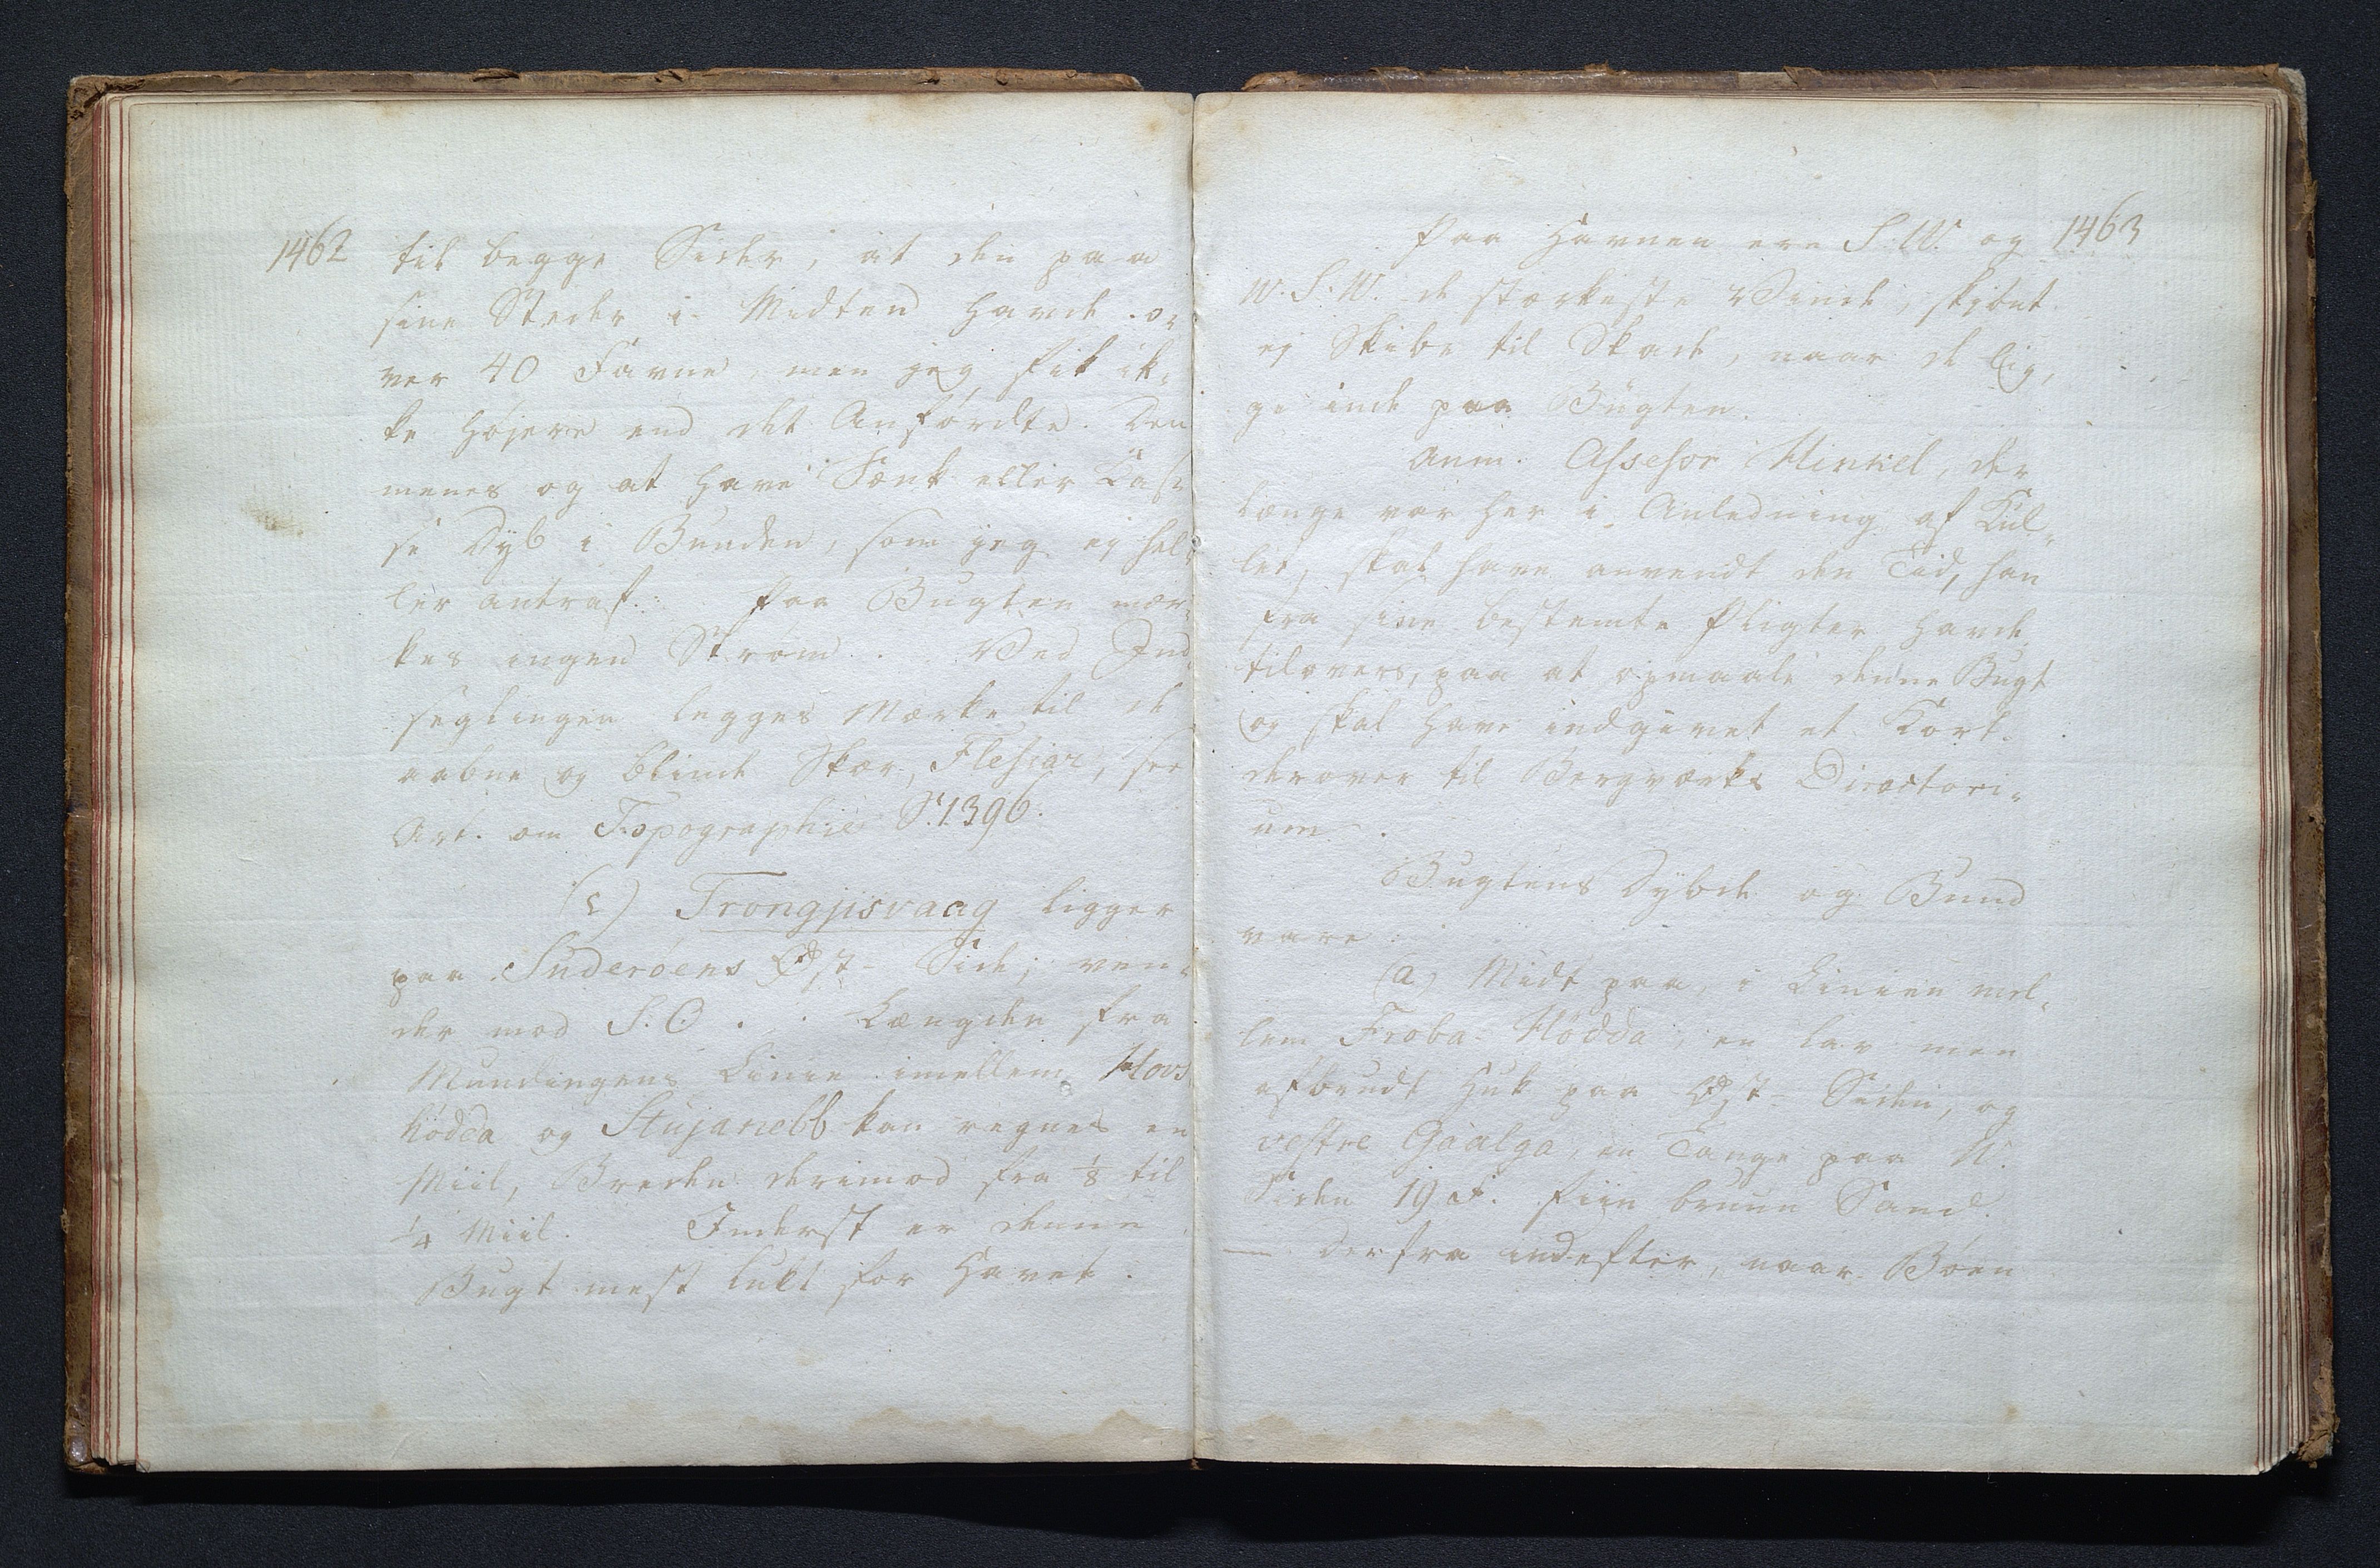 1462
til begge Sider, at den paa
sine Steder i Midten havde o-
ver 40 Favne, men jeg fik ik-
ke højere end det Anførdte. Den
menes og at have Sænk eller
se Dyb i Bunden, som jeg ej hel-
ler antraf. Paa Bugten mær-
kes ingen Strøm. Ved Ind-
seglingen legges Mærke til de
aabne og blinde Skær, Flesjar, see
Art. om Topographie S. 1396.
(c) Trongjisvaag ligger
paa Suderöens Øst-Side; ven-
der mod S. O. Længden fra
Mundingens Linie imellem Hovs
hódda og Stujanebb kan regnes en
Miil, Breden derimod fra 1/8 til
1/4 Miil. Inderst er denne
Bugt mest lukt for Havet.
1463
Paa Havnen ere S. W. og
W. S. W. de stærkeste Vinde, skjønt
ej Skibe til Skade, naar de lig-
ge inde paa Bugten.
Anm. Assessor Henkel, der
længe var her i Anledning af Kul-
let, skal have anvendt den Tid, han
fra sine bestemte Pligter havde
tilovers, paa at opmaale denne Bugt
og skal have indgivet et Kort
derover til Bergværks Directori-
um.
Bugtens Dybde og Bund
vare:
(a) Midt paa, i Linien mel-
lem Froba-Hódda, en lav men
afbrudt Huk paa Øst-Siden, og
vestre Gaalga, en Tange paa N.
Siden 19 F. fiin bruun Sand.
— derfra indefter, naar Böen